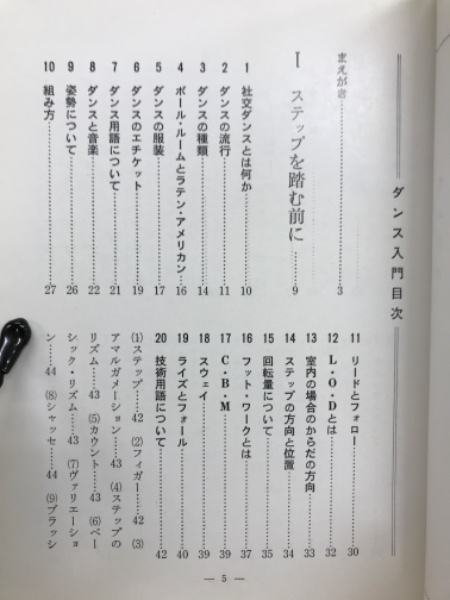 ダンス入門目次
まえがき……3
Ⅰ ステップを踏む前に……9
1 社交ダンスとは何か……10
2 ダンスの流行……11
3 ダンスの種類……14
4 ボール・ルームとラテン・アメリカン……16
5 ダンスの服装……17
6 ダンスのエチケット……19
7 ダンス用語について……21
8 ダンスと音楽……22
9 姿勢について……26
10 組み方……27
11 リードとフォロー……30
12 L・O・Dとは……32
13 室内の場合のからだの方向……33
14 ステップの方向と位置……34
15 回転量について……35
16 フット・ワークとは……37
17 C・B・M……39
18 スウェイ……39
19 ライズとフォール……40
20 技術用語について……42
(1)ステップ……42 (2)フィガー……42 (3)
アマルガメーション……43 (4)ステップの
リズム……43 (5)カウント……43 (6)ベー
シック・リズム……43 (7)ヴァリエーショ
ン……44 (8)シャッセ……44 (9)ブラッシ
— 5 —